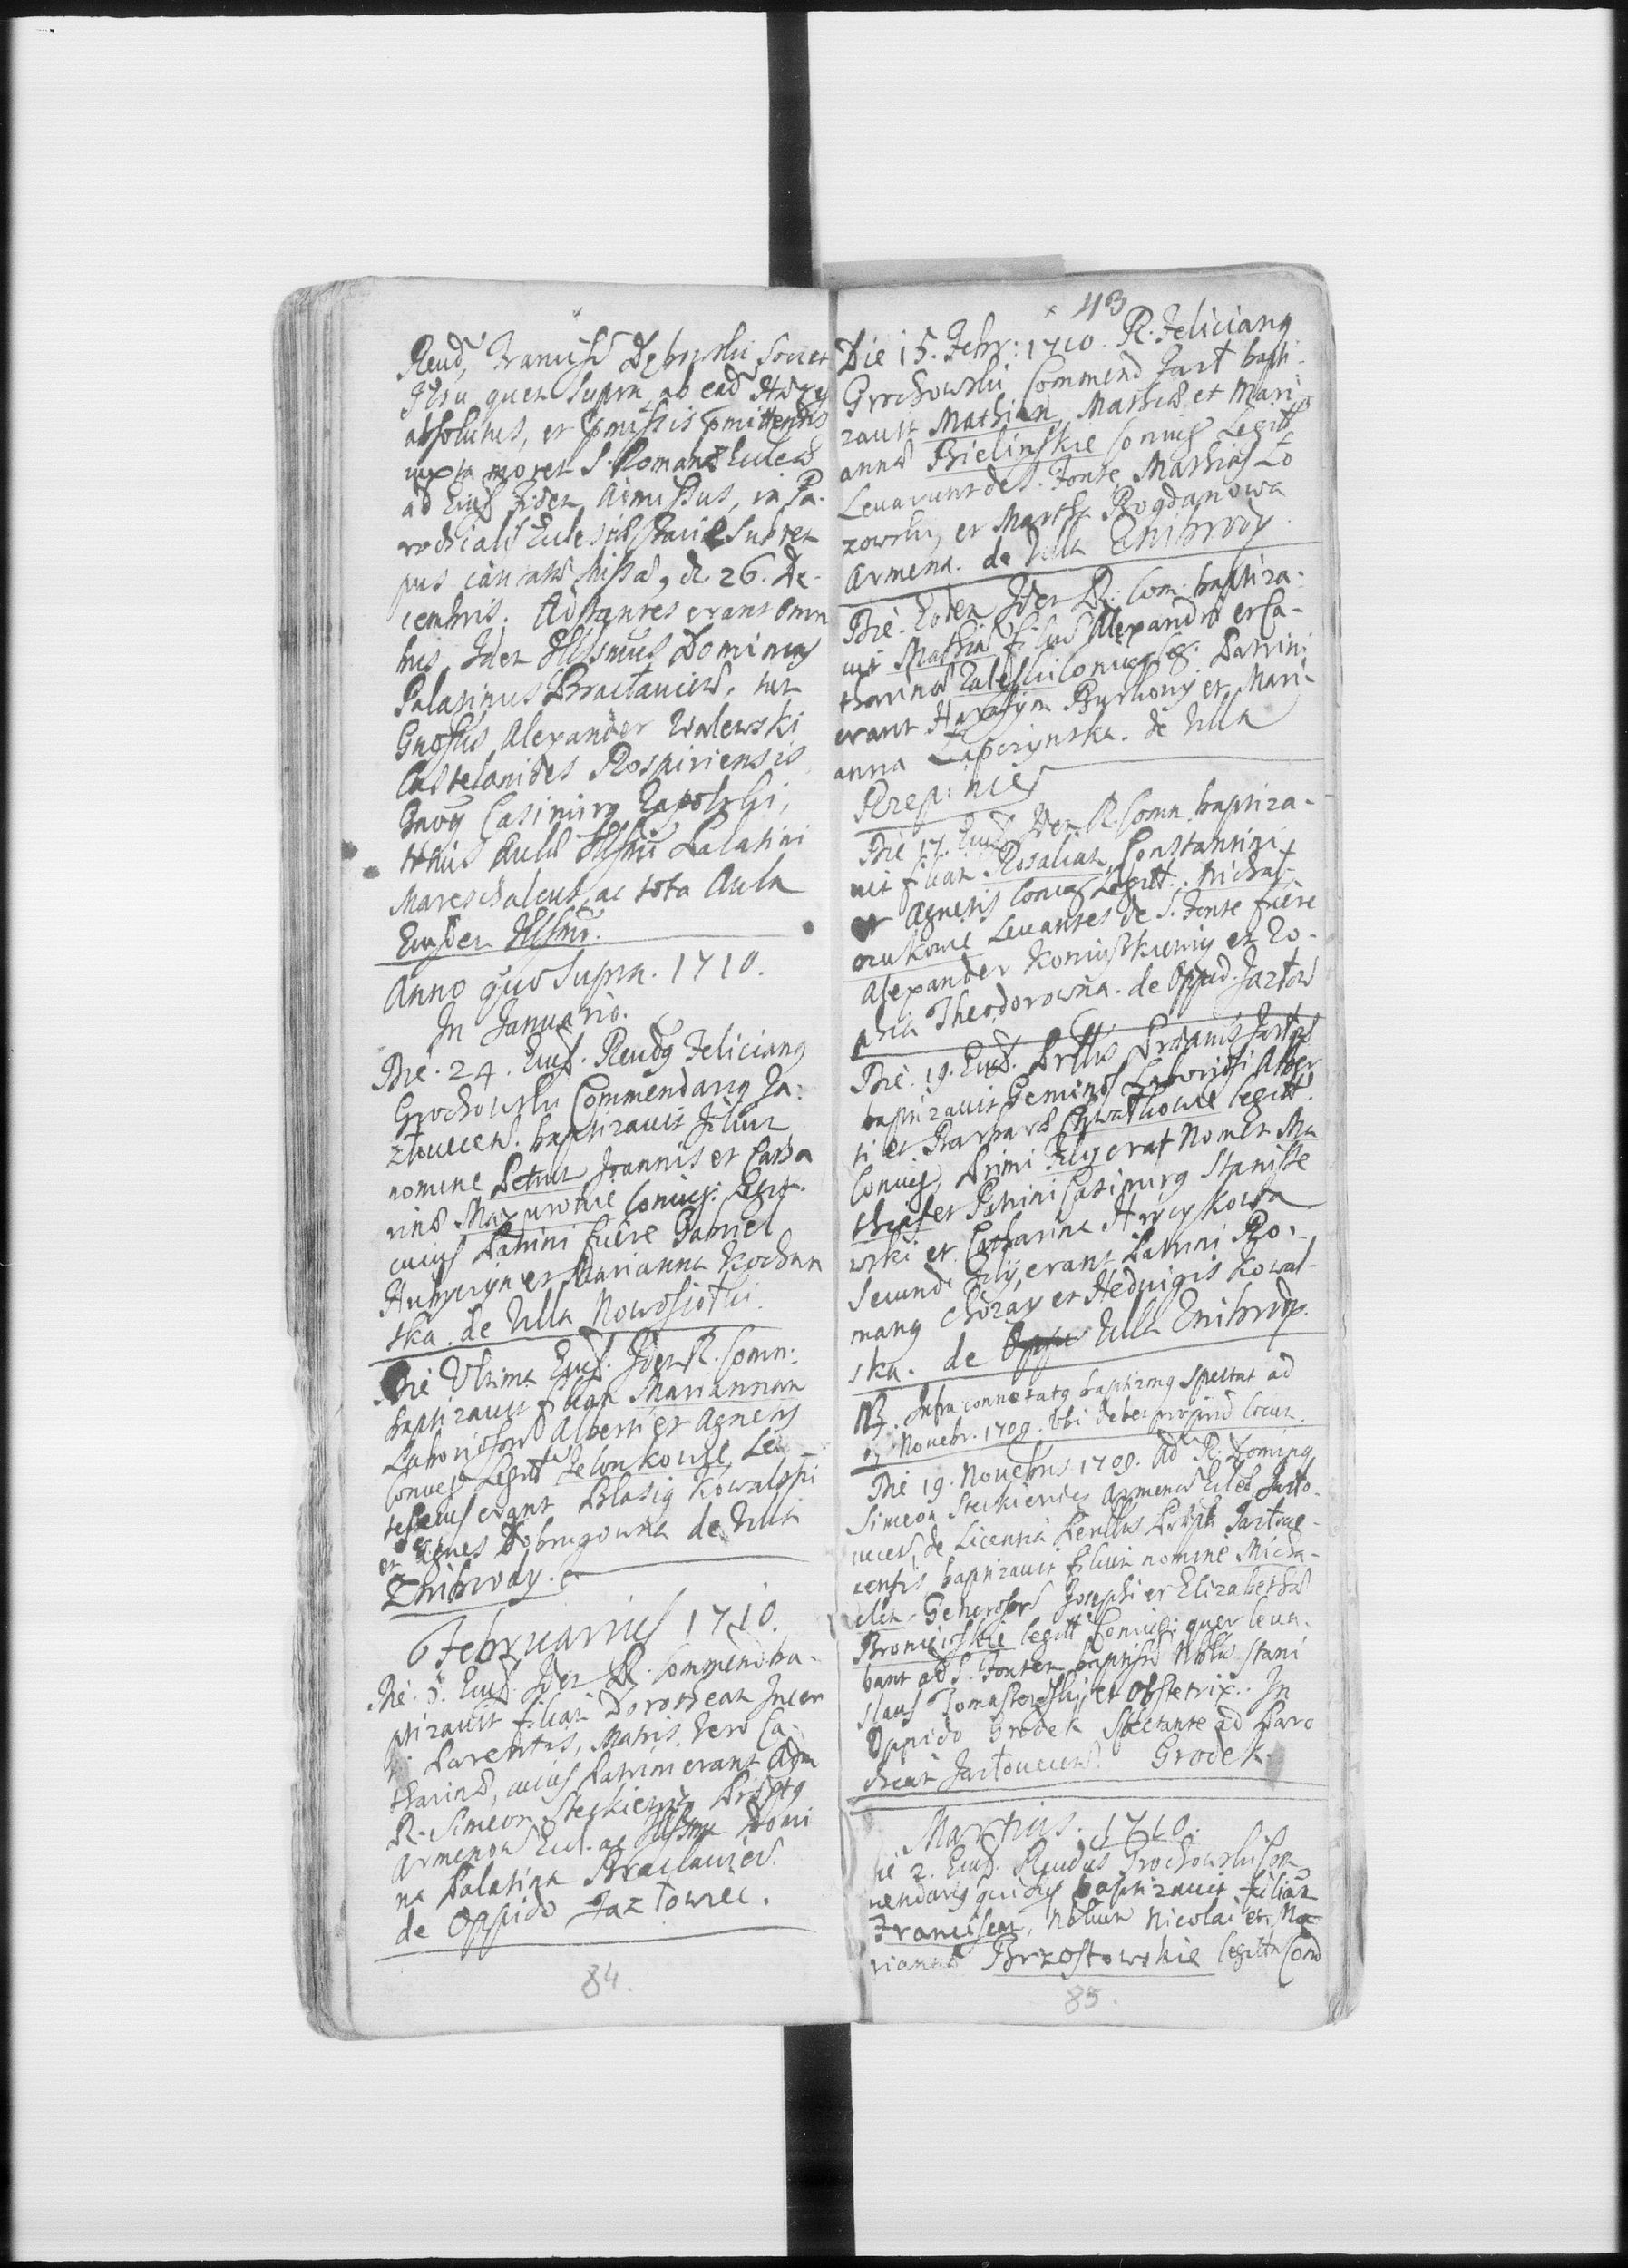 Reud, Francisco Dębowski Societ
Jesu, quem Supra, ab ead Hæresi
absolutus, et pmissis pmittendis
iuxta morem S. Romanæ Eccles
ad Eius Fidem Admissus, in Pa.
rochiali Ecclesia
pus cantatæ Missæ, d. 26. De-
cembris. Adstantes erant omni
bus, Idem Illssmus Dominus
Palatinus Bracłaviens, tum
Gnosus Alexander Walewski
Castelanides Rospiriensis
Casimirus Zapolski,
Aulæ Illsmi Palatini
Mareschalcus, ac tota Aula
Eiusdem Illsmi.
Anno quo Supra. 1710.
In Januario.
Die. 24. Eiusd. Reudus Felicianus
Grochowski Commendarius Ja-
złovecen. baptizavit Filium
nomine Petrum Joannis et Catha
rinæ Mazurowie Coniug: Legit.
cuius Patrini fuere Gabriel
et Marianna Kochan
ska. de Villa Nowosiołki.
Die Ultima Eiusd. Idem R. Comn.
baptizavit filiam Mariannam
Laboriosor Alberti et Agnetis
Coniug Legitt Zelonkowie, Le-
vantes eius erant Blasius Kowalski
et Agnes Dobrugowna de Villa
Znibrody.
Februarius 1710.
Die. 5. Eiusd. Idem R. Commend ba-
ptizavit filiam Dorotheam Incer
ti Parentis, Matris vero Ca-
tharinæ, cuius Patrini erant Adm
R. Simeon Steckiewicz Præptus
Armenor Eccl. ac Illssma Domi
na Palatina Bracłavien.
de Oppido Jazłowiec.
84.
43
Die 15. Febr: 1710. R. Felicianus
Grochowski Commend Jazł bapti-
zavit Mathiam, Mathiæ et Mari-
annæ Bielinskie Coniug Legitt
Levarunt de S. Fonte, Mathias Ło
zowski, et Martha Bogdanowa
Armena. de Villa Znibrody.
Die. Eodem Idem R. Com. baptiza-
vit Mathiã filiũ Alexandri et Ca-
tharinæ Zaleski Coniug Leg. Patrini
erant Harasym Burkowy et Mari-
anna Łapczynska. de Villa
Przepinces
Die 17. Eiusd Idem R. Comn. baptiza-
vit filiam Rosaliam, Constantini
et Agnetis Coniug Legitt. Michal-
czukowie Levantes de S. Fonte fuere
Alexander Koniuszkiewicz et Zo-
phia Theodorowna. de Oppid. Jazłow
Die. 19. Eiusd. Prllus
baptizavit Geminos Laboriosi Alber
ti et Barbaræ Chwatkowie legitt.
Coniug, Primi Filij erat Nomen Ma
thias et Patrini Casimirus Stanisze
wski et Catharina Hrycykowa
Secundi Filij, erant Patrini Ro-
manus Choraz et Hedvigis Kowal-
ska. de Oppi Villa Znibrody.
NB. Infra connotatus baptizmus spectat ad
19 Novebr. 1709. Ubi debet propriũ locum.
Die 19. Novebris 1709. Ad R. Dominus
Simeon Steckiewicz Armenor Eccles Jazło-
viecen, de Licentia Perillus Præpti Jazłowe-
censis baptizavit filium nomine Micha-
elem Generosor Josephi et Elizabethæ
Broniewskie legitt Coniug: quem leva-
bant ad S. Fontem baptism Nblis Stani
slaus Tomaszewski et Obstetrix. In
Oppido Grodek Spectante ad Paro
chiam Jazłoviecen. Grodek
Martius. 1710.
Die 2. Eiusd. Reudus Grochowski Com
mendarius qui sup baptizavit filiam
Franciscam, Nbilium Nicolai et Ma
riannæ Brzostowskie legittm Coniu
85.